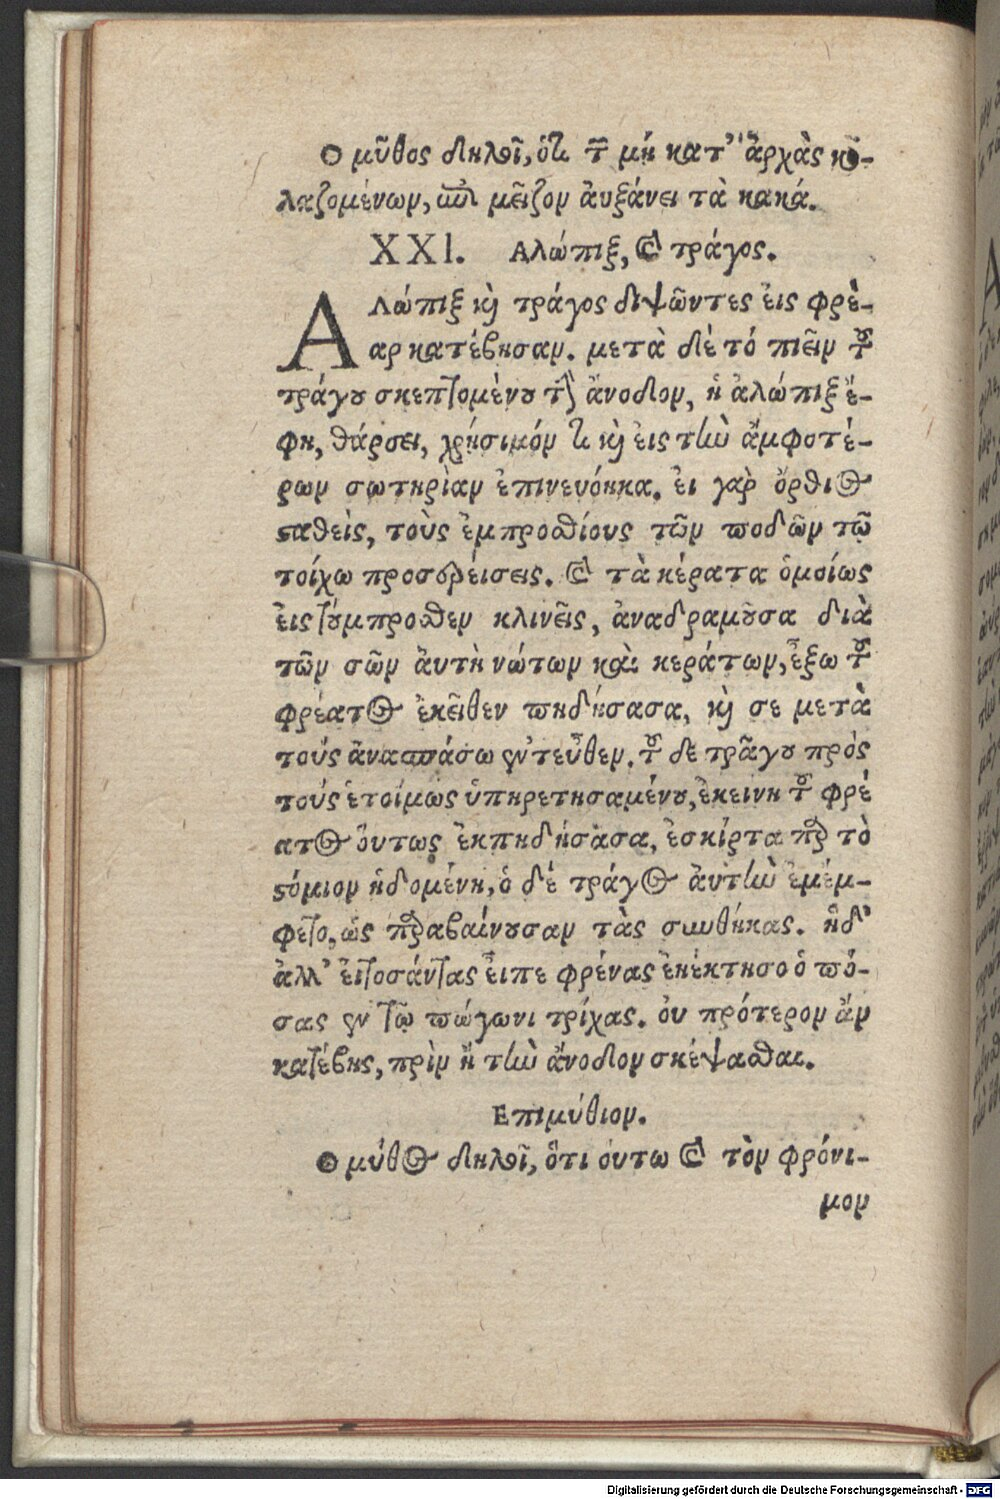 Ο μῦθος δηλοῖ, ὅτι τῶν μὴ κατ' ἀρχὰς κο-
λαζομένων, ἐπὶ μεῖζον ἀυξάνει τὰ κακά.
XXI. Αλώπιξ, καὶ τράγος.
Αλώπιξ καὶ τράγος διψῶντες ἐις φρὲ-
αρ κατέβησαν. μετὰ δὲ τό πιεῖν τοῦ
τράγου σκεπτομὲνου τὴν ἄνοδον, ἡ ἀλώπιξ ἔ-
φη, θάρσει, χρήσιμόν τι καὶ ἐις τὴν ἀμφοτέ-
ρων σωτηρίαν ἐπινενόηκα. ἐι γὰρ ὄρθιος
σαθεὶς, τοὺς ἐμπροσθίους τῶν ποδῶν τῷ
τοίχω προσερείσεις. καὶ τὰ κέρατα ὁμοίως
ἐις τούμπροσθεν κλινεῖς, ἀναδραμοῦσα διὰ
τῶν σῶν ἀυτὴ νώτων καὶ κεράτων, ἔξω τοῦ
φρέατος ἐκεῖθεν πηδήσασα, καὶ σε μετὰ
τοῦς ἀνασπάσω ἐντεῦθεν. τοῦ δε τρᾶγου πρὸς
τοῦς ἑτοίμως ὑπηρετησαμένου, ἐκείνη τοῦ φρέ
ατος ὅυτως ἐκπηδήσασα, ἐσκίρτα περὶ τὸ
στόμιον ἡδομένη, ὁ δὲ τράγος ἀυτὴν ἐμέμ-
φετο, ὡς παραβαίνουσαν τὰς συνθήκας. ἡδ'
ἀλλ' ἐι τοσάντας ἔιπε φρένας ἐκέκτησο ὁ πό-
σας ἐν τῷ πώγωνι τρίχας. ὀυ πρότερον ἄν
κατέβης, πρὶν ἢ τὴν ἄνοδον σκέψασθαι.
Επιμύθιον.
Ο μύθος δηλοῖ, ὅτι ὁυτω καὶ τὸν φρόνι-
μον
Digitalisierung gefördert durch die Deutsche Forschungsgemeinschaft - DFG